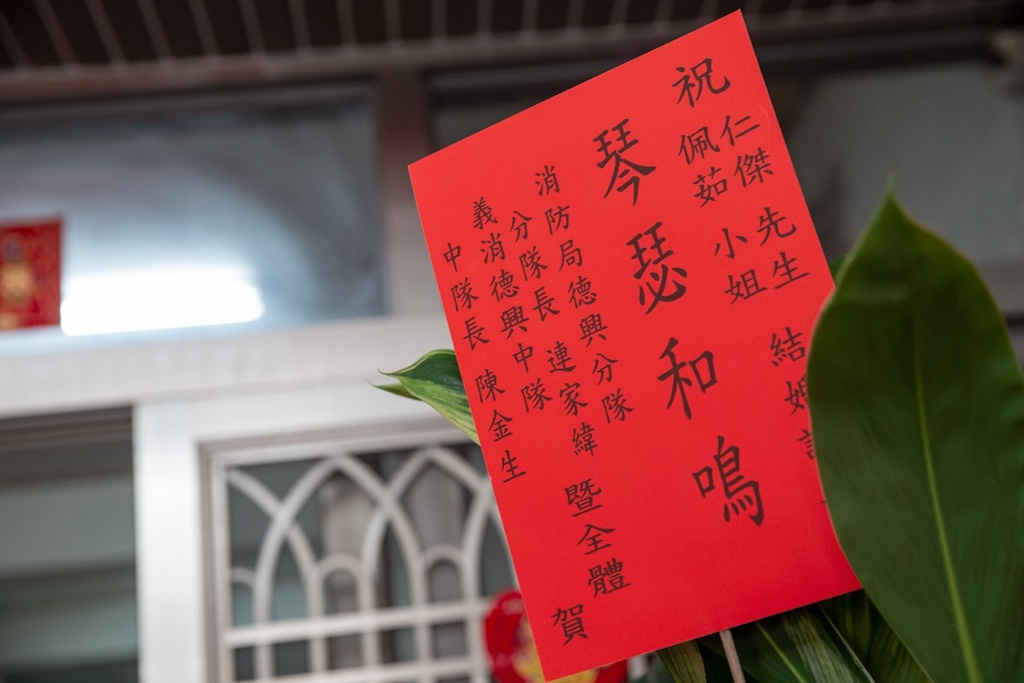 祝
仁傑 先生
佩茹 小姐
結婚
琴瑟和鳴
消防局德興分隊
分隊長 連家緯
義消德興中隊
中隊長 陳金生
暨全體
賀